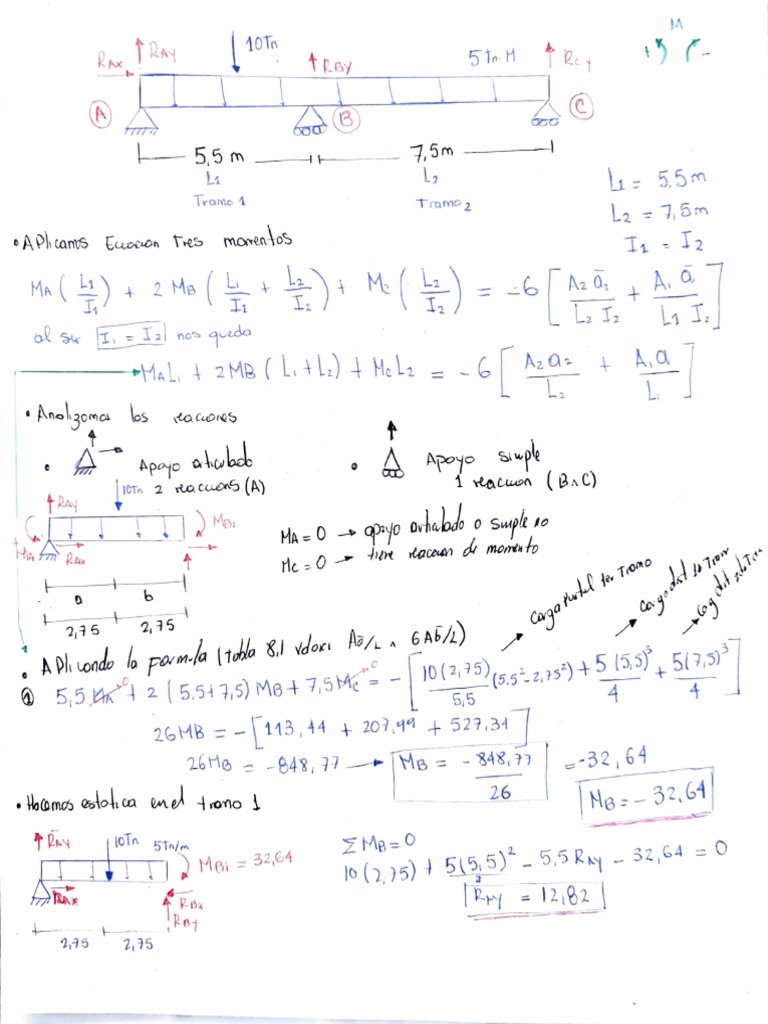 RAX RAY 10Tn RBY 5 Tn.M RCY M + -
A B C
5,5 m 7,5m
L1 L2
Tramo 1 Tramo 2
L1 = 5.5m
L2 = 7,5m
I1 = I2
• Aplicamos Ecuacion Tres momentos
MA (L1/I1) + 2 MB (L1/I1 + L2/I2) + Mc (L2/I2) = -6 [A2 ā2/L2 I2 + A1 ā/L1 I2]
al ser I1 = I2 nos queda
MAL1 + 2MB (L1+L2) + McL2 = -6 [A2a2/L2 + A1a/L1]
• Analizamos las reacciones
• Apoyo articulado
2 reaccions (A)
• Apoyo simple
1 reaccion (B∧C)
RAY 10Tn MBi
MA RAX
a b
2,75 2,75
MA = 0 → apoyo articulado o simple no
Mc = 0 → tiene reaccion de momento
• Aplicando la formula (tabla 8,1 valores Aā/L ∧ 6Ab̄/L)
Carga puntal 1er Tramo
① 5,5 MA→0 + 2 (5,5+7,5) MB + 7,5 Mc→0 = -[10(2,75)/5,5 (5,5²-2,75²) + 5(5,5)³/4 + 5(7,5)³/4]
26MB = -[113,44 + 207,99 + 527,34]
26MB = -848,77 → MB = -848,77/26 = -32,64
MB = -32,64
• Hacemos estatica en el tramo 1
RAY 10Tn 5Tn/m MBi = 32,64
RAX RBx
RBY
2,75 2,75
ΣMB=0
10(2,75) + 5(5,5)²/2 - 5,5 RAY - 32,64 = 0
RAY = 12,82